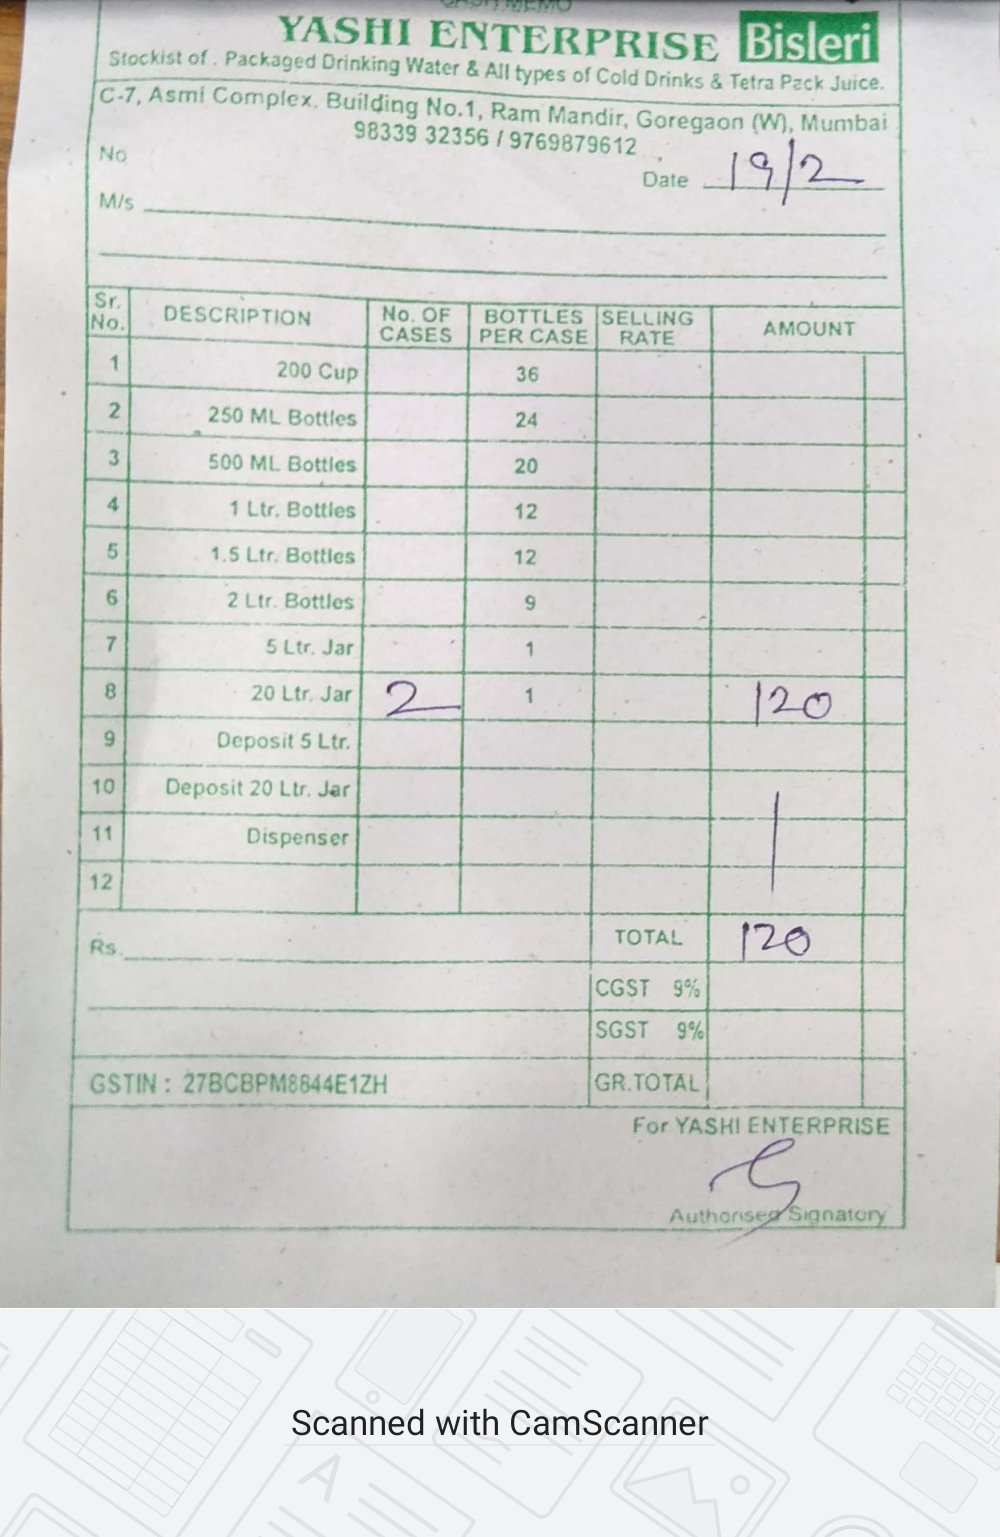 CASH MEMO
YASHI ENTERPRISE Bisleri
Stockist of . Packaged Drinking Water & All types of Cold Drinks & Tetra Pack Juice.
C-7, Asmi Complex, Building No.1, Ram Mandir, Goregaon (W), Mumbai
98339 32356 / 9769879612
No
Date 19/2
M/s
Sr. No. DESCRIPTION No. OF CASES BOTTLES PER CASE SELLING RATE AMOUNT
1 200 Cup 36
2 250 ML Bottles 24
3 500 ML Bottles 20
4 1 Ltr. Bottles 12
5 1.5 Ltr. Bottles 12
6 2 Ltr. Bottles 9
7 5 Ltr. Jar 1
8 20 Ltr. Jar 2 1 120
9 Deposit 5 Ltr.
10 Deposit 20 Ltr. Jar
11 Dispenser
12
Rs. TOTAL 120
CGST 9%
SGST 9%
GSTIN : 27BCBPM8844E1ZH GR.TOTAL
For YASHI ENTERPRISE
Authorised Signatory
Scanned with CamScanner